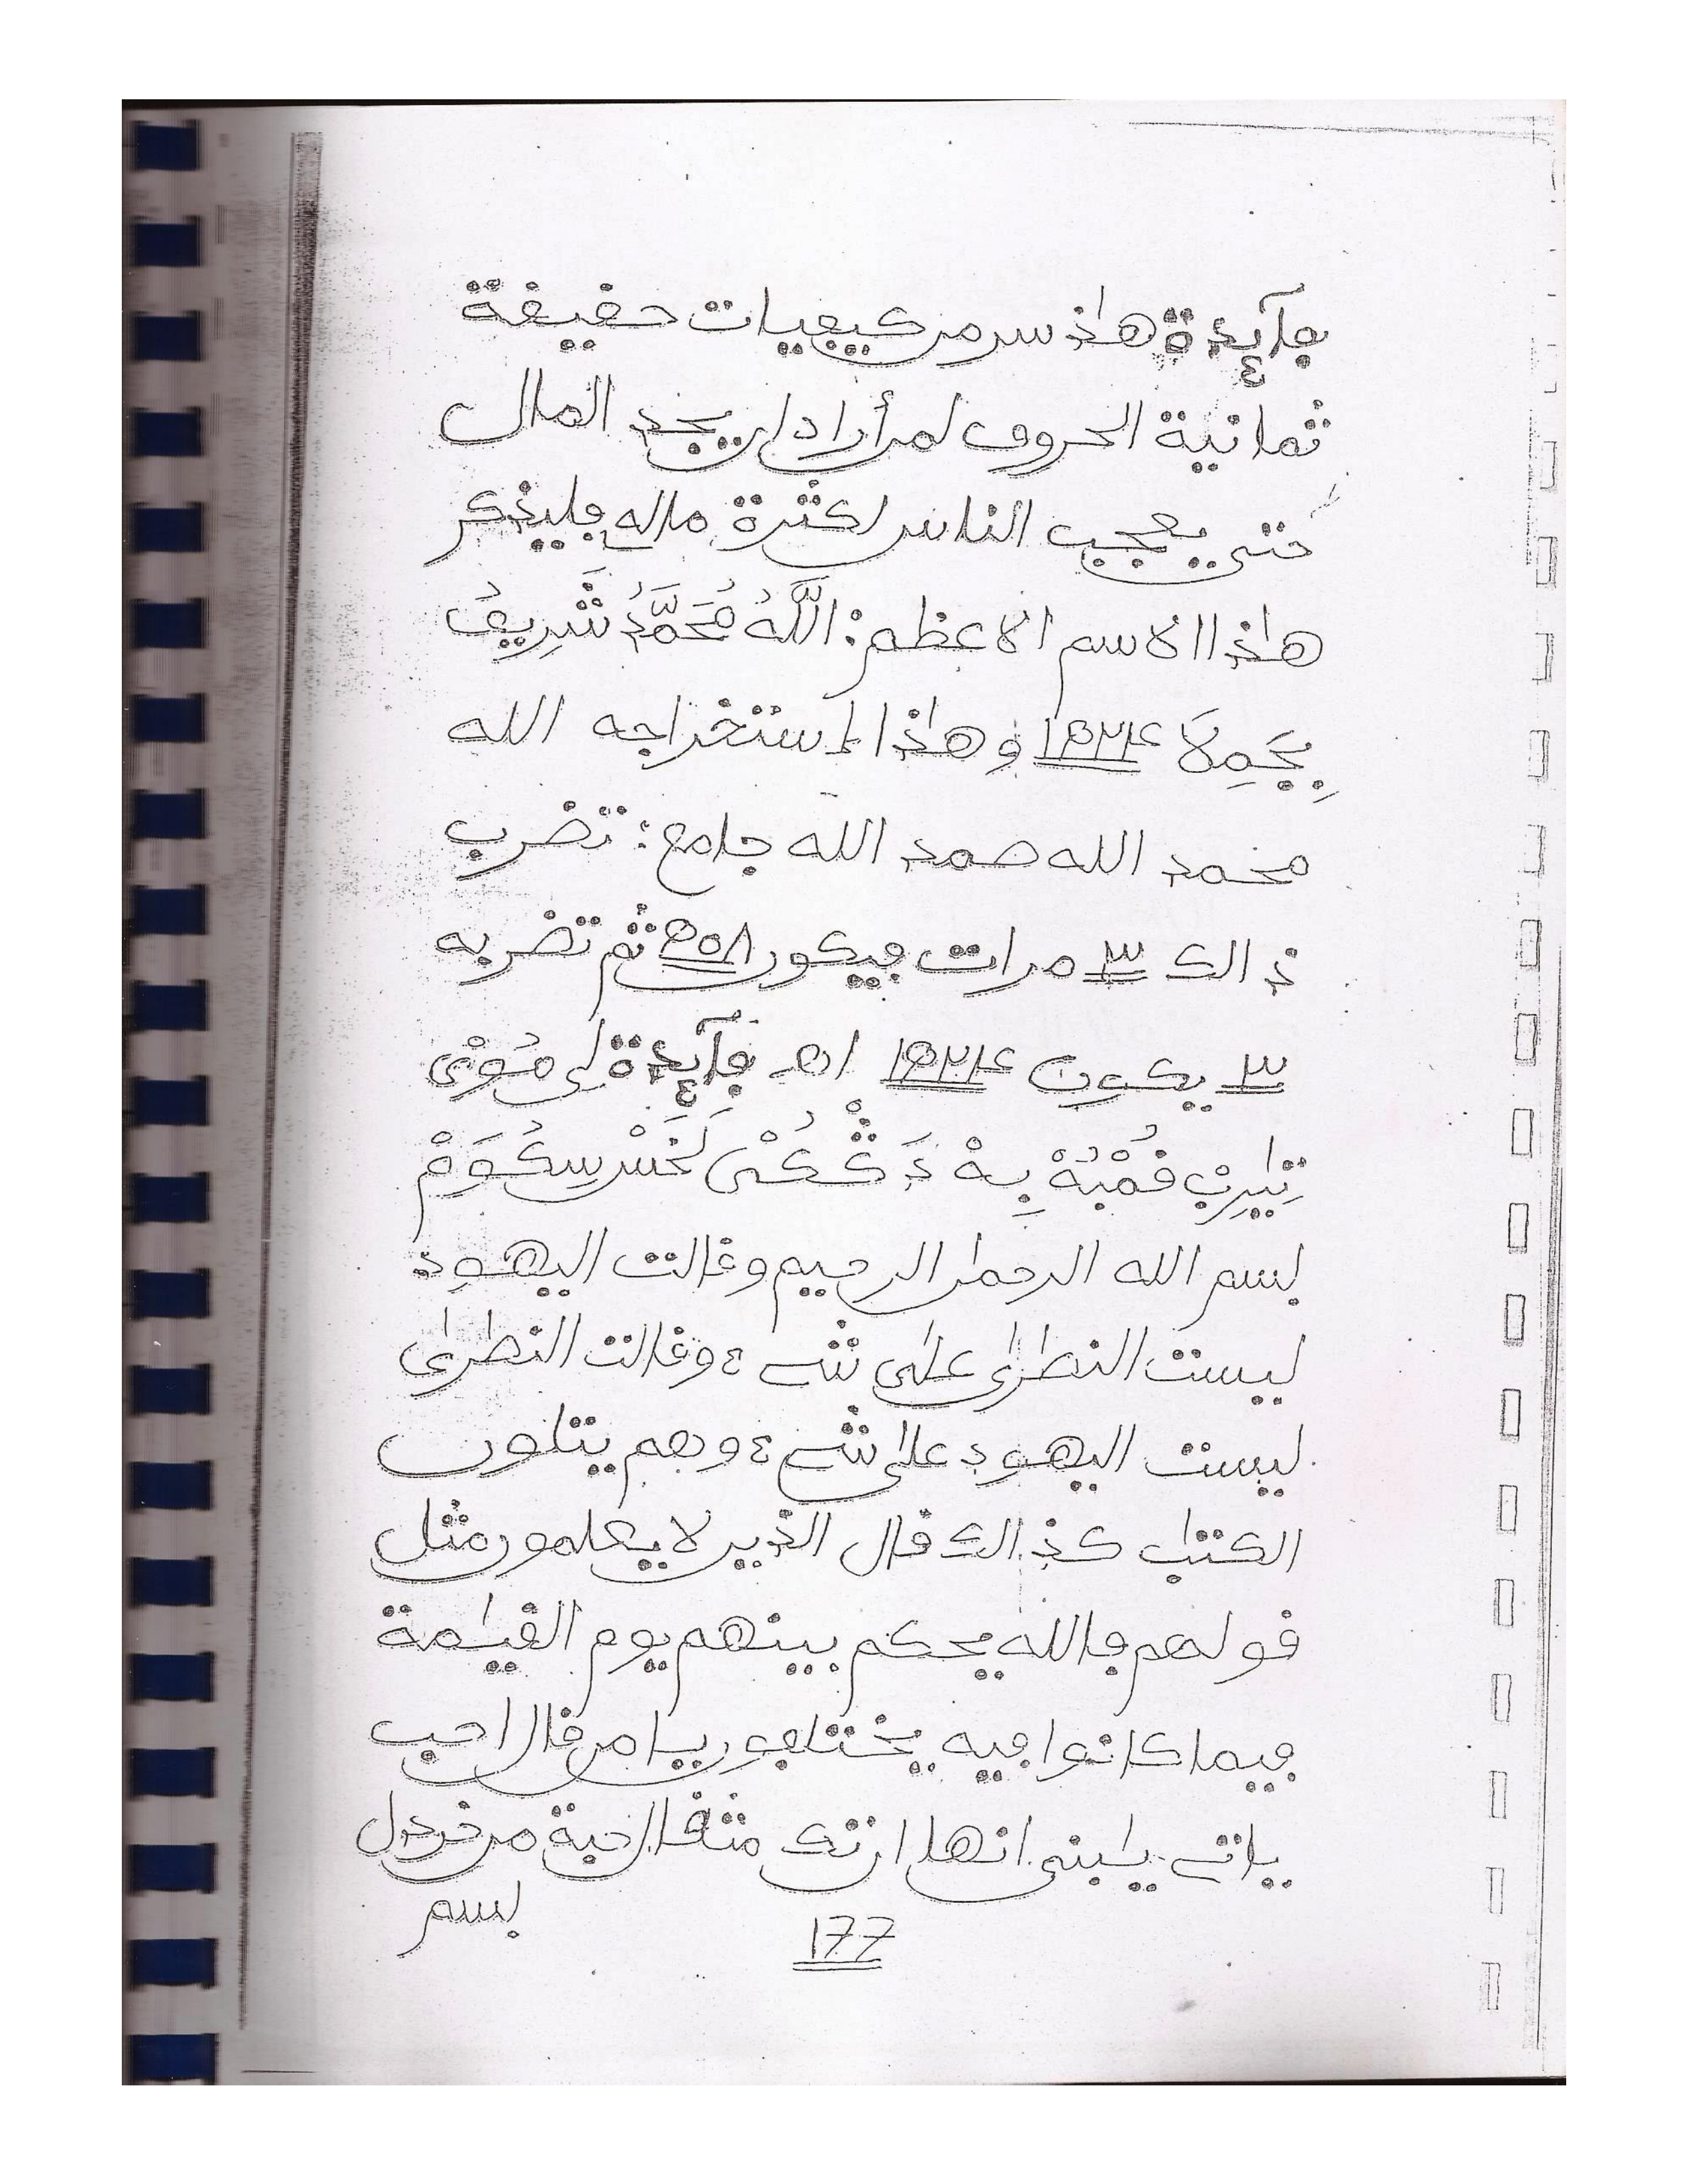 فآئدة هاذ سر من كيفيات حقيقة
ثمانية الحروف لمن أراد ان يجد المال
حتى يعجب الناس لكثرة ماله فليذكر
هاذا الاسم الاعظم: اللَّهُ مُحَمَّدُ شَرِيفُ
بِجَمِلاَ ١٥٢٤ و هاذا إستخراجه الله
محمد الله صمد الله جامع: تضرب
ذالك ٣ مرات فيكون ٥٠٨ ثم تضربه
٣ يكون ١٥٢٤ اهـ فآئدة
بسم الله الرحمن الرحيم وقالت اليهود
ليست النصرى على شےء وقالت النصرى
ليست اليهود على شےء وهم يتلون
الكتب كذالك قال الذين لا يعلمون مثل
قولهم فالله يحكم بينهم يوم القيمة
فيما كانوا فيه يختلفون يا من قال احب
ياتے يبنى انها ان تك مثقال حبة من خردل
بسم
177